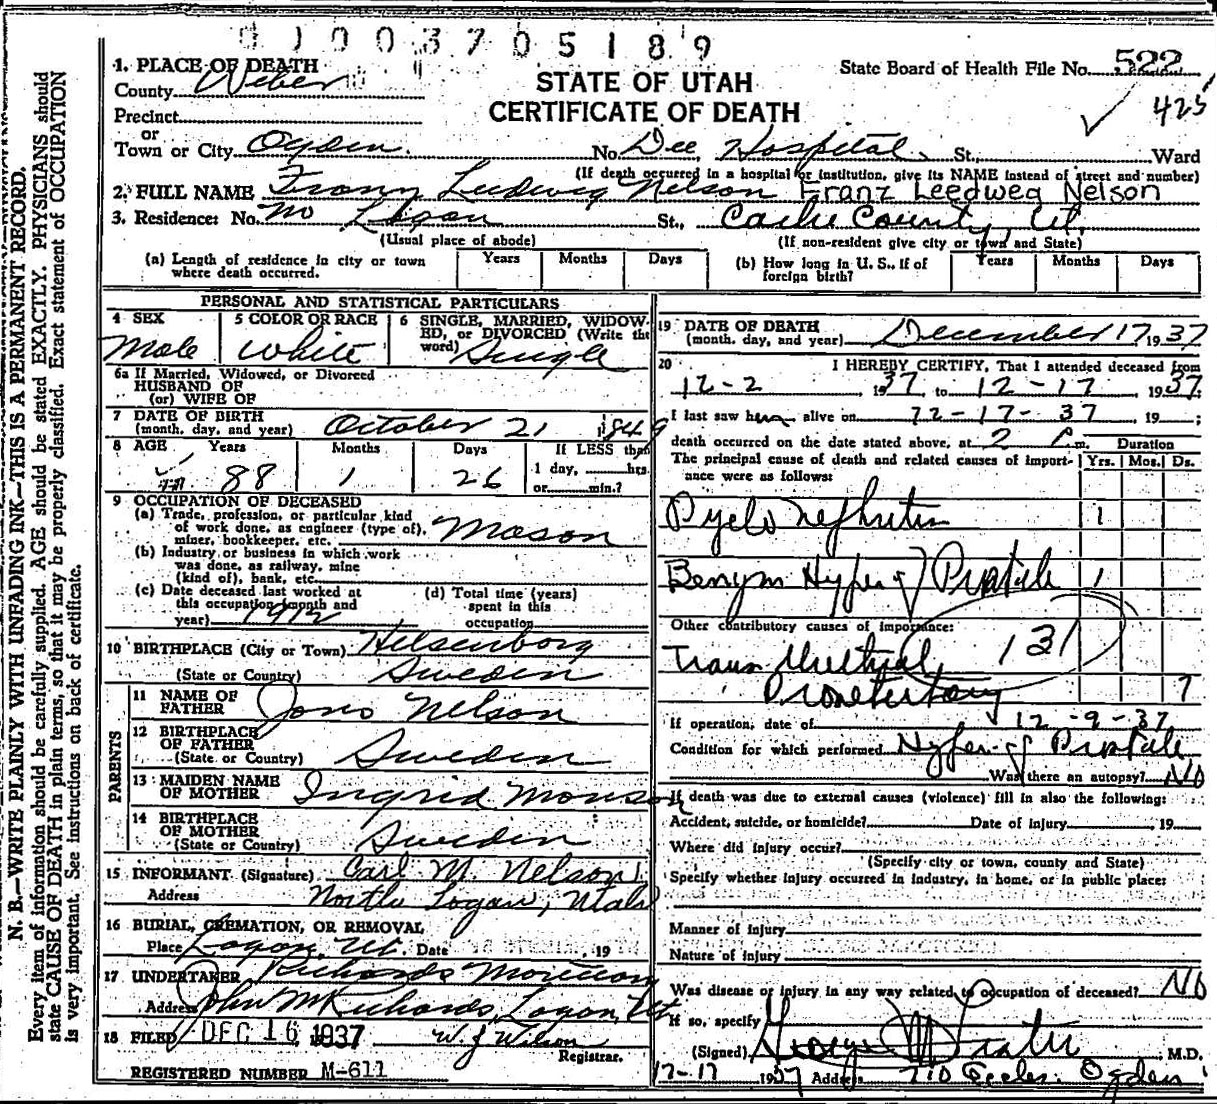 0 1 0 0 3 7 0 5 1 8 9
1. PLACE OF DEATH
County Weber
STATE OF UTAH
CERTIFICATE OF DEATH
State Board of Health File No. 522
425
Precinct
or
Town or City Ogden. No. Dee Hospital St., Ward
(If death occurred in a hospital or institution, give its NAME instead of street and number)
2. FULL NAME Franz Leedweg Nelson Franz Leedweg Nelson
3. Residence: No. no Logan St., Cache County, Ut.
(Usual place of abode) (If non-resident give city or town and State)
(a) Length of residence in city or town where death occurred. Years Months Days
(b) How long in U. S., if of foreign birth? Years Months Days
PERSONAL AND STATISTICAL PARTICULARS
4 SEX Male
5 COLOR OR RACE White
6 SINGLE, MARRIED, WIDOWED, or DIVORCED (Write the word) Single
6a If Married, Widowed, or Divorced
HUSBAND OF
(or) WIFE OF
7 DATE OF BIRTH
(month, day, and year) October 21 1849
8 AGE Years Months Days If LESS than
88 1 26 1 day, hrs.
or min.?
9 OCCUPATION OF DECEASED
(a) Trade, profession, or particular kind
of work done, as engineer (type of),
miner, bookkeeper, etc. Mason
(b) Industry or business in which work
was done, as railway, mine
(kind of), bank, etc.
(c) Date deceased last worked at
this occupation (month and
year) 1912
(d) Total time (years)
spent in this
occupation
10 BIRTHPLACE (City or Town) Helsenborg
(State or Country) Sweden
PARENTS
11 NAME OF
FATHER Jons Nelson
12 BIRTHPLACE
OF FATHER
(State or Country) Sweden
13 MAIDEN NAME
OF MOTHER Ingrid Monson
14 BIRTHPLACE
OF MOTHER
(State or Country) Sweden
15 INFORMANT (Signature) Carl M. Nelson
Address North Logan, Utah
16 BURIAL, CREMATION, OR REMOVAL
Place Logan, Ut. Date 19
17 UNDERTAKER Richards Mortuary
Address John M Richards, Logan, Ut
18 FILED DEC 16 1937 W. J Wilson
Registrar.
REGISTERED NUMBER M-611
19 DATE OF DEATH
(month, day, and year) December 17 1937
20 I HEREBY CERTIFY, That I attended deceased from
12-2 1937 to 12-17 1937
I last saw him alive on 12-17-37 19 ;
death occurred on the date stated above, at 2 P m. Duration
The principal cause of death and related causes of importance were as follows: Yrs. Mos. Ds.
Pyelo nephritis 1
Benign Hyper of Prostate 1
Other contributory causes of importance:
131
Trans Urethral
7
If operation, date of 12-9-37
Condition for which performed Hyper of Prostate
Was there an autopsy? No
If death was due to external causes (violence) fill in also the following:
Accident, suicide, or homicide? Date of injury 19
Where did injury occur?
(Specify city or town, county and State)
Specify whether injury occurred in industry, in home, or in public place:
Manner of injury
Nature of injury
Was disease or injury in any way related to occupation of deceased? No
If so, specify
(Signed) George M , M.D.
12-17 1937 Address 710 Eccles. Ogden
N. B.—WRITE PLAINLY WITH UNFADING INK—THIS IS A PERMANENT RECORD.
Every item of information should be carefully supplied. AGE should be stated EXACTLY. PHYSICIANS should
state CAUSE OF DEATH in plain terms, so that it may be properly classified. Exact statement of OCCUPATION
is very important. See instructions on back of certificate.